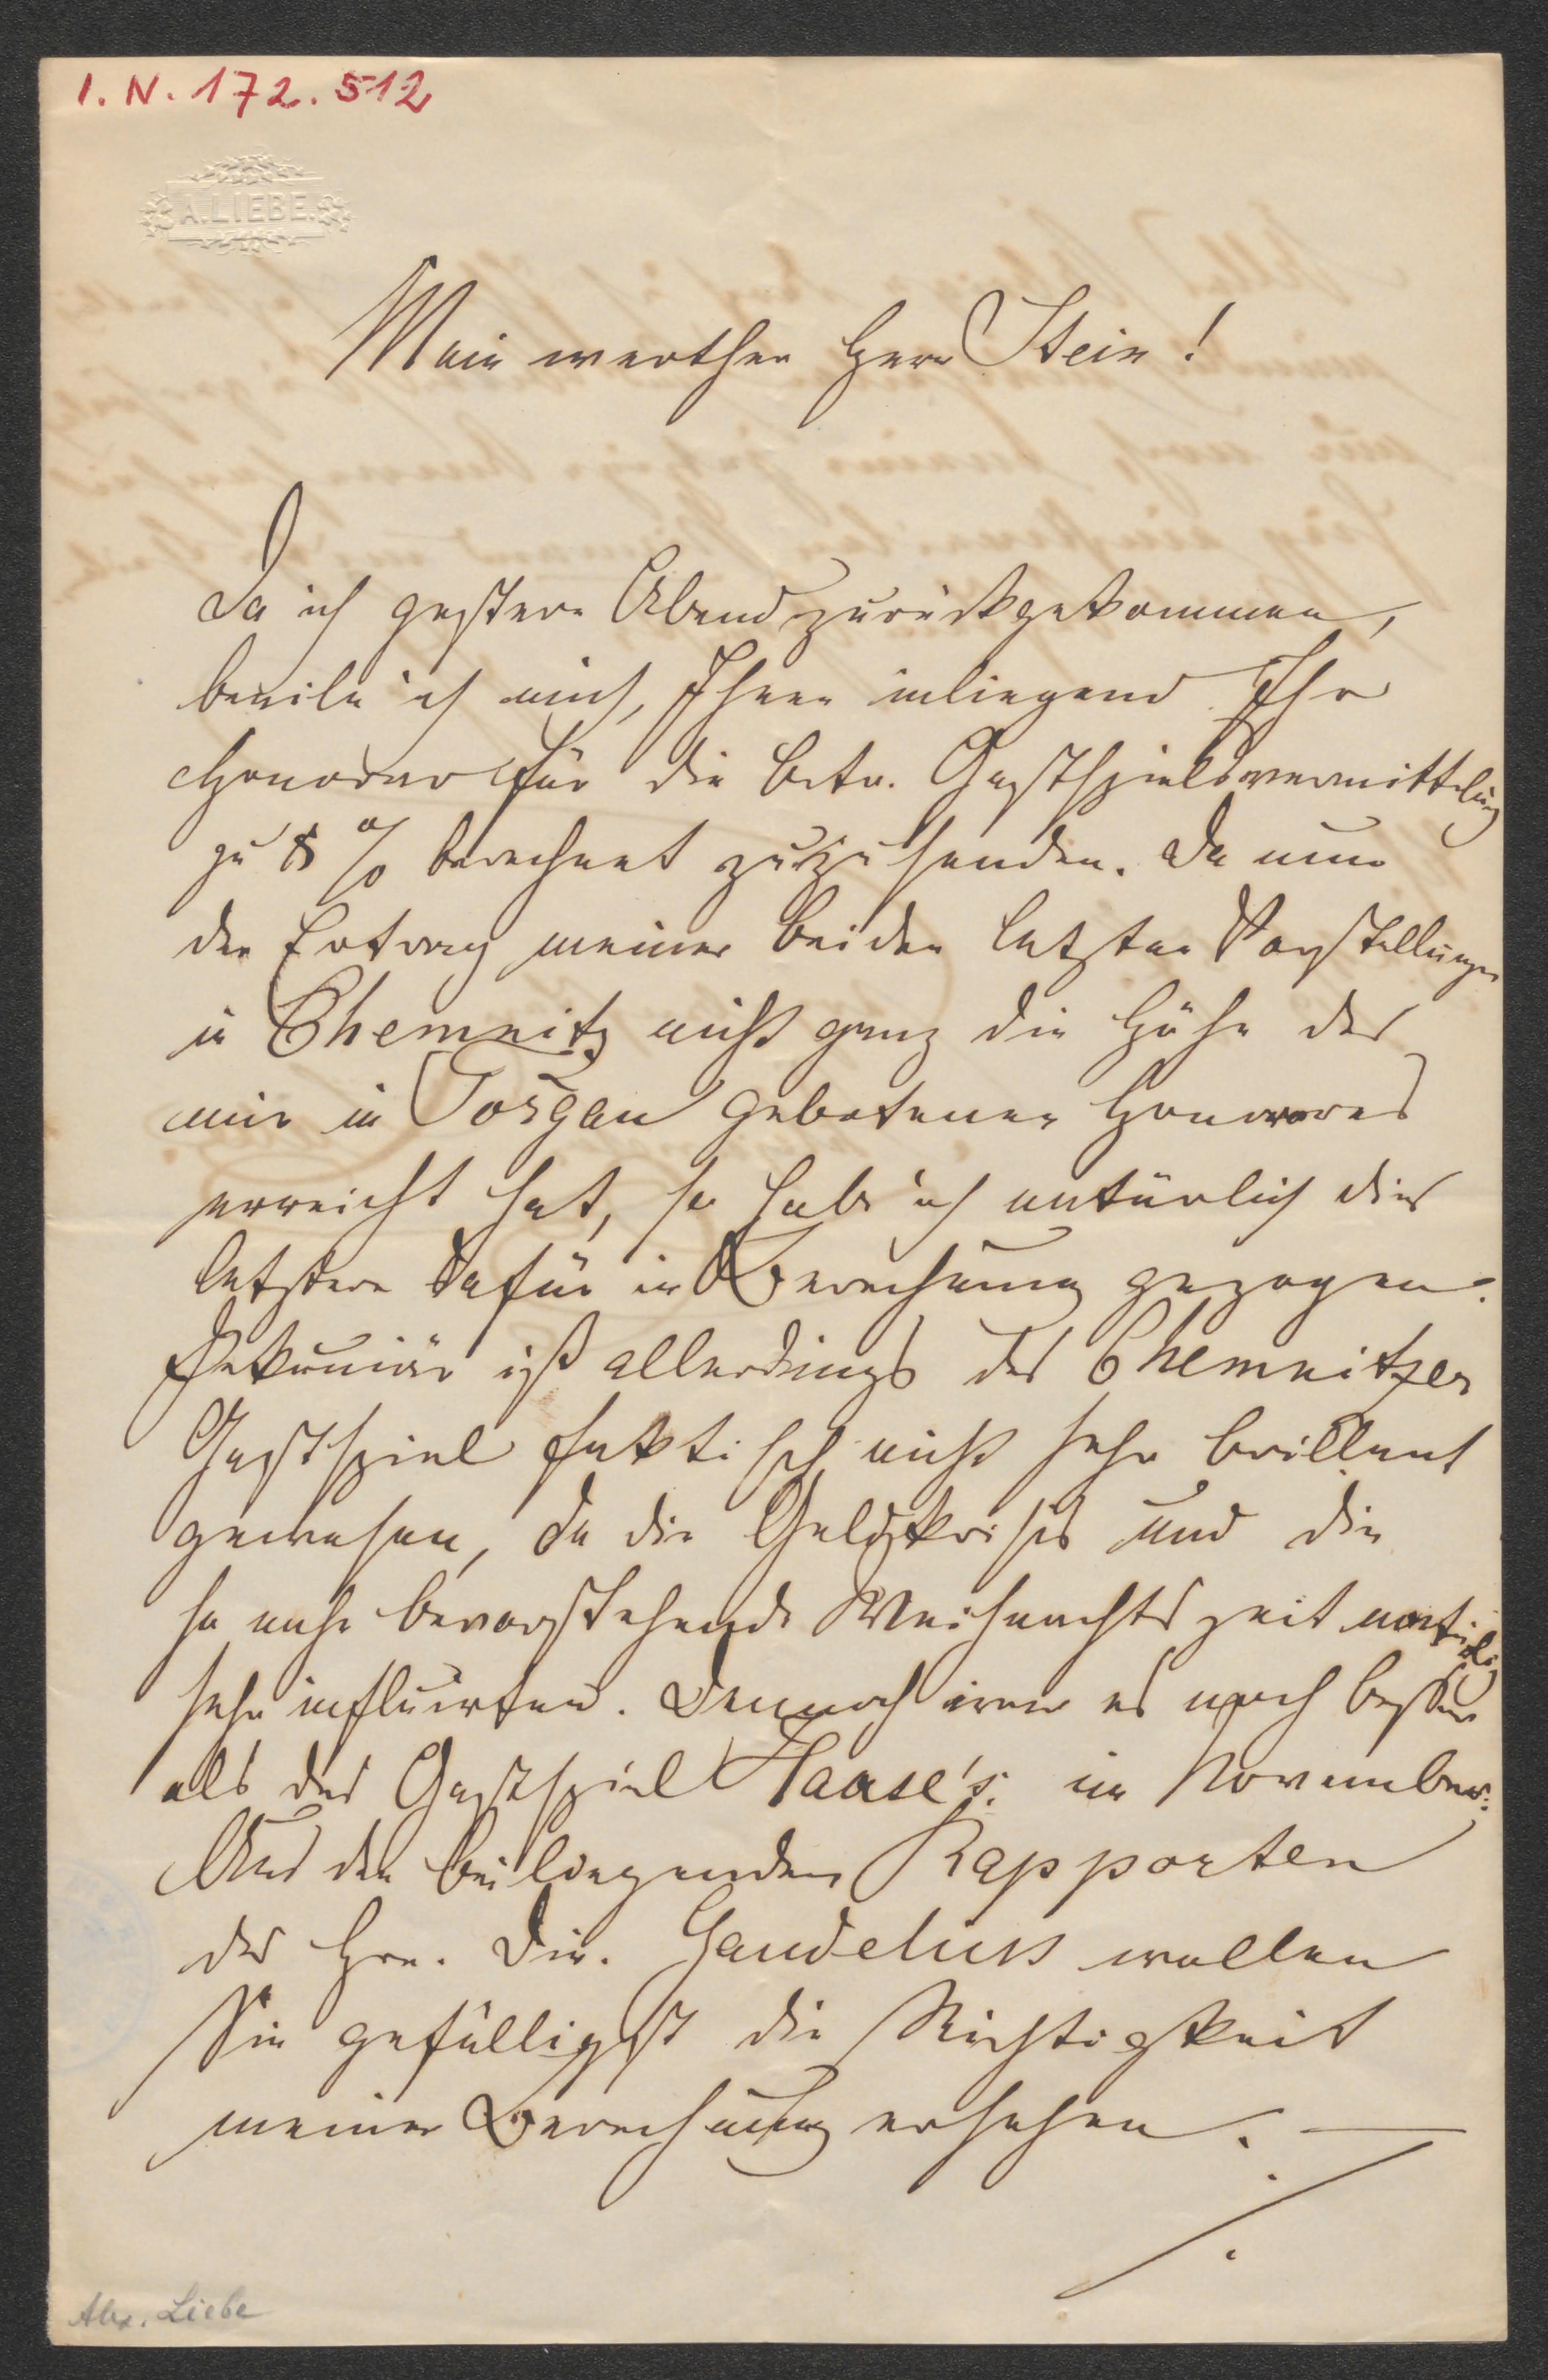 I. N. 172.512
A. LIEBE.
Mein werther Herr Stein!
Da ich gestern Abend zurückgekommen,
beeile ich mich, Ihnen inliegend Ihr
Honorar für die betr. Gastspielsvermittelung
zu 5 % berechnet zuzusenden. Da nun
der Ertrag meiner beiden letzten Vorstellungen
in Chemnitz nicht ganz die Höhe des
mir in Torgau gebotenen Honorares
erreicht hat, so habe ich natürlich dies
letztere dafür in Berechnung gezogen.
Pekuniär ist allerdings das Chemnitzer
Gastspiel faktisch nicht sehr brillant
gewesen, da die Geldkrisis und die
so nahe bevorstehende Weihnachtszeit natürlich
sehr influirten. Dennoch war es noch besser
als das Gastspiel Haase's im November.
Aus den beiliegenden Rapporten
des Hrn. Dir. Gaudelius wollen
Sie gefälligst die Richtigkeit
meiner Berechnung ersehen. —
./.
Alex. Liebe